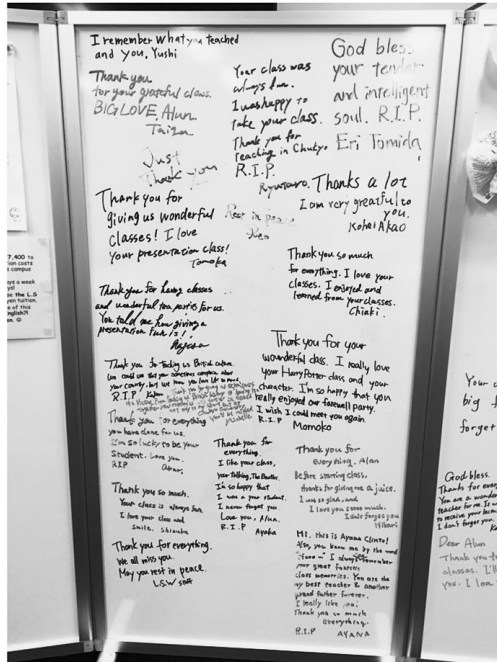 I remember what you teached
and you, Yushi
Thank you
for your grateful class.
BIG LOVE, Alun.
Taiga
Just
Thank you
Your class was
always fun.
I was happy to
take your class.
Thank you for
teaching in Chukyo.
R.I.P.
Ryutaro.
God bless
your tender
and intelligent
soul. R.I.P.
Eri Tomida
Thanks a lot
I am very greatful to
you.
Kohei Akao
Thank you for
giving us wonderful
classes! I love
your presentation class!
Tomoka
Rest in peace
Thank you so much
for everything. I love your
classes. I enjoyed and
learned from your classes.
Chiaki.
Thank you for having classes
and wonderful tea parties for us.
You told me how giving a
presentation fun is!!
Thank you for your
wounderful class. I really love
your Harry Potter class and your
character. I'm so happy that you
really enjoyed our farewell party.
I wish I could meet you again.
R.I.P
Momoko
Thank you for teaching us British culture.
R.I.P
Thank you for everything
you have done for us.
I'm so lucky to be your
Student. Love you.
R.I.P
Thank you for
everything.
I like your class,
your talking, The Beatles.
I'm so happy that
I was a your student.
I never forget you
Love you, Alun.
R.I.P
Ayaka
Thank you for
everything, Alan
Before starting class,
thanks for giving me a juice.
I was so glad, and
I love you soooo much.
I don't forget you
Hikari
Thank you so much.
Your class is always fun.
I love your class and
smile.
Thank you for everything.
We all miss you.
May you rest in peace.
L.S.W staff
Hi, this is Ayana
Also, you know me by the word
I always remember
your great fantastic
class memories. You are the
my best teacher & another
grand father forever.
I really like you.
Thank you so much
everything.
R.I.P AYANA
7,400 to
campus
days a week
the L.S
tuition.
of this
English?!
God bless.
Thanks for
You are a
teacher for me.
to receive your
I don't forget you.
Dear Alun
Thank you
classes. I'll
you. I